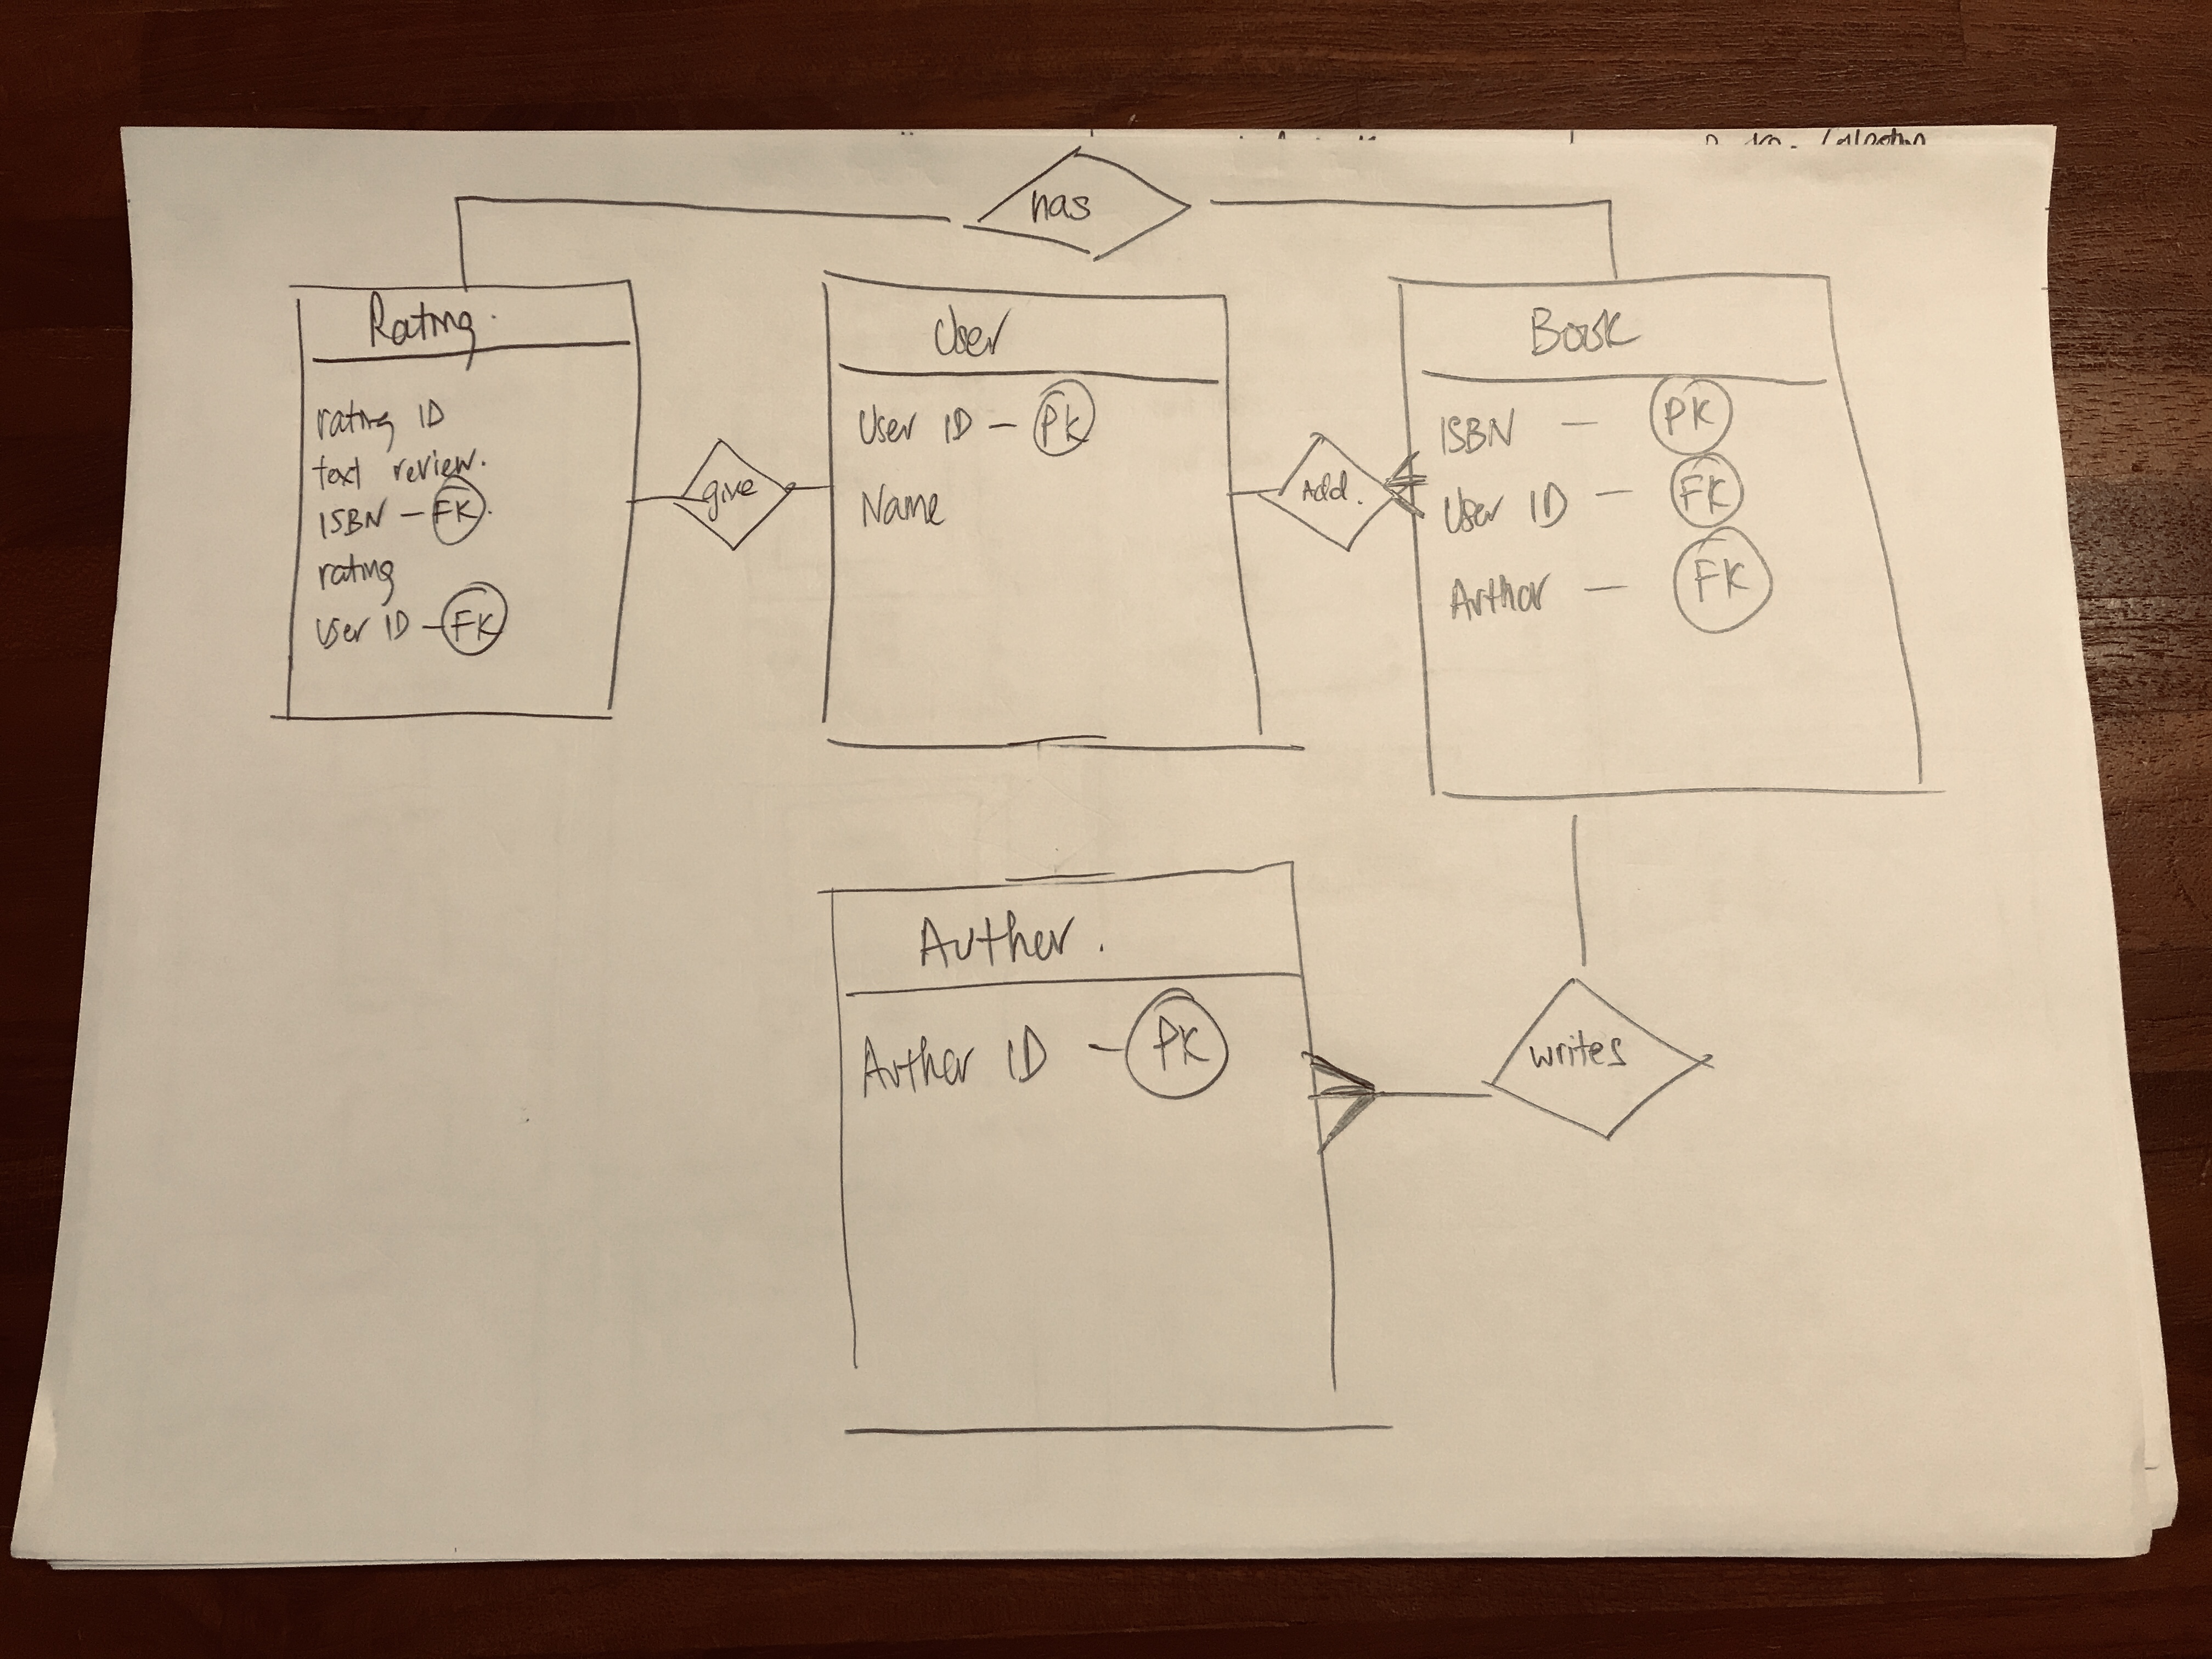 has
Rating.
rating ID
text review.
ISBN - FK.
rating
User ID - FK
give
User
User ID - PK
Name
Add.
Book
ISBN - PK
User ID - FK
Author - FK
Auther.
Auther ID - PK
writes